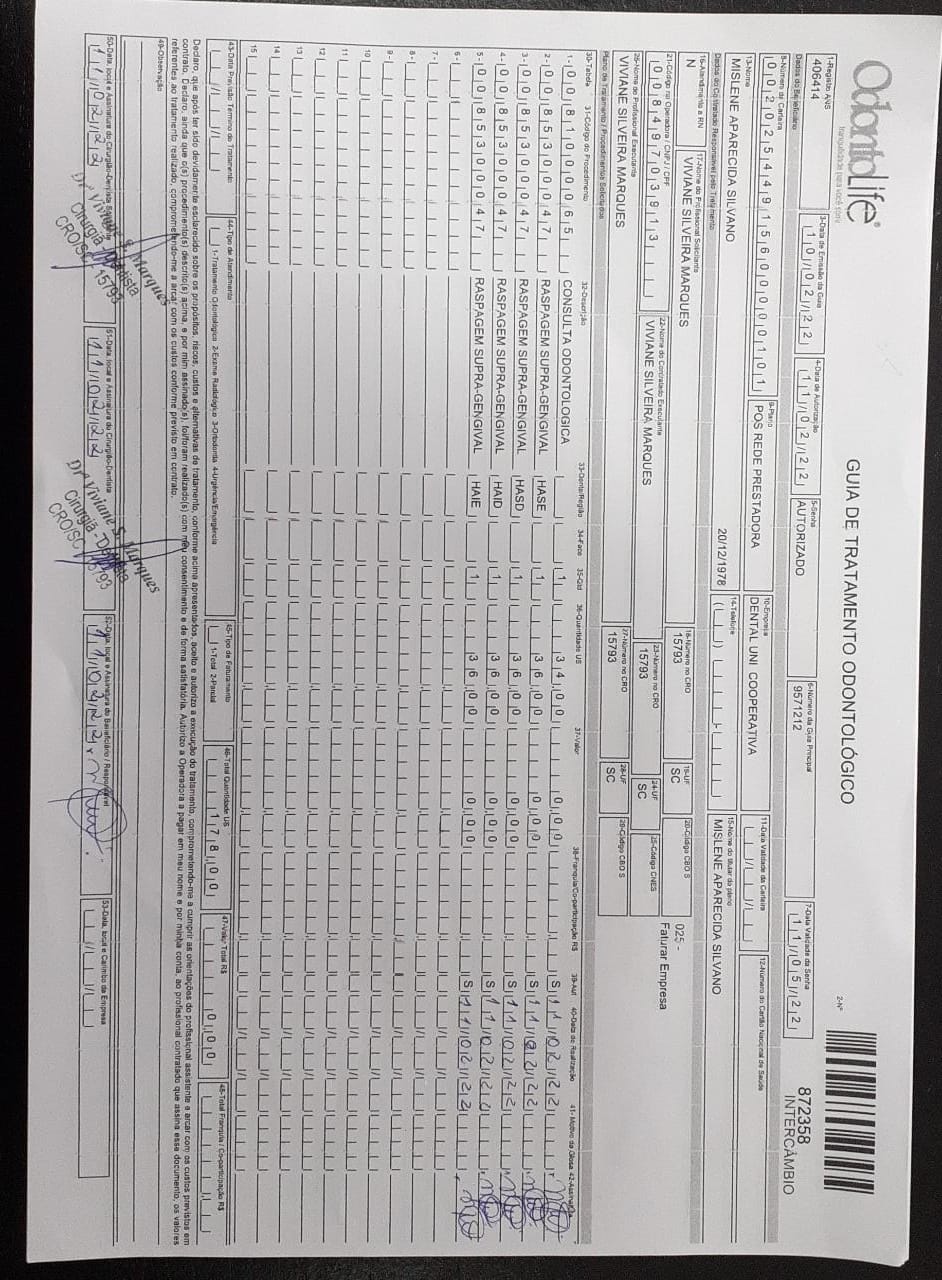 OdontoLife®
tranquilidade para você sorrir
GUIA DE TRATAMENTO ODONTOLÓGICO
2-Nº
872358
INTERCÂMBIO
1-Registro ANS
406414
3-Data de Emissão da Guia
10/02/22
4-Data de Autorização
11/02/22
5-Senha
AUTORIZADO
6-Número da Guia Principal
9571212
7-Data Validade da Senha
11/05/22
Dados do Beneficiário
8-Número da Carteira
00202544915600000101
9-Plano
POS REDE PRESTADORA
10-Empresa
DENTAL UNI COOPERATIVA
11-Data Validade da Carteira
12-Número do Cartão Nacional de Saúde
13-Nome
MISLENE APARECIDA SILVANO
20/12/1978
14-Telefone
15-Nome do titular do plano
MISLENE APARECIDA SILVANO
Dados do Contratado Responsável pelo Tratamento
16-Atendimento a RN
N
17-Nome do Profissional Solicitante
VIVIANE SILVEIRA MARQUES
18-Número no CRO
15793
19-UF
SC
20-Código CBO S
025 -
Faturar Empresa
21-Código na Operadora / CNPJ / CPF
00849703913
22-Nome do Contratado Executante
VIVIANE SILVEIRA MARQUES
23-Número no CRO
15793
24-UF
SC
25-Código CNES
26-Nome do Profissional Executante
VIVIANE SILVEIRA MARQUES
27-Número no CRO
15793
28-UF
SC
29-Código CBO S
Plano de Tratamento / Procedimentos Solicitados
30-Tabela 31-Código do Procedimento 32-Descrição 33-Dente/Região 34-Face 35-Qtd 36-Quantidade US 37-Valor 38-Franquia/Co-participação R$ 39-Aut 40-Data de Realização 41- Motivo da Glosa 42-Assinatura
1- 00 81000065 CONSULTA ODONTOLOGICA 1 34,00 0,00 S 11/02/22
2- 00 85300047 RASPAGEM SUPRA-GENGIVAL HASE 1 36,00 0,00 S 11/02/22
3- 00 85300047 RASPAGEM SUPRA-GENGIVAL HASD 1 36,00 0,00 S 11/02/22
4- 00 85300047 RASPAGEM SUPRA-GENGIVAL HAID 1 36,00 0,00 S 11/02/22
5- 00 85300047 RASPAGEM SUPRA-GENGIVAL HAIE 1 36,00 0,00 S 11/02/22
6-
7-
8-
9-
10
11
12
13
14
15
43-Data Previsão Término do Tratamento
44-Tipo de Atendimento
1-Tratamento Odontológico 2-Exame Radiológico 3-Ortodontia 4-Urgência/Emergência
45-Tipo de Faturamento
1-Total 2-Parcial
46-Total Quantidade US
178,00
47-Valor Total R$
0,00
48-Total Franquia / Co-participação R$
Declaro, que após ter sido devidamente esclarecido sobre os propósitos, riscos, custos e alternativas de tratamento, conforme acima apresentados, aceito e autorizo a execução do tratamento, comprometendo-me a cumprir as orientações do profissional assistente e arcar com os custos previstos em
contrato. Declaro, ainda que o(s) procedimento(s) descrito(s) acima, e por mim assinado(s), foi/foram realizado(s) com meu consentimento e de forma satisfatória. Autorizo a Operadora a pagar em meu nome e por minha conta, ao profissional contratado que assina esse documento, os valores
referentes ao tratamento realizado, comprometendo-me a arcar com os custos conforme previsto em contrato.
49-Observação
50-Data, local e Assinatura do Cirurgião-Dentista Solicitante
11/02/22
Drª Viviane S. Marques
Cirurgiã - Dentista
CRO/SC 15793
51-Data, local e Assinatura do Cirurgião-Dentista
11/02/22
Drª Viviane S. Marques
Cirurgiã - Dentista
CRO/SC 15793
52-Data, local e Assinatura do Beneficiário / Responsável
11/02/22
53-Data, local e Carimbo da Empresa